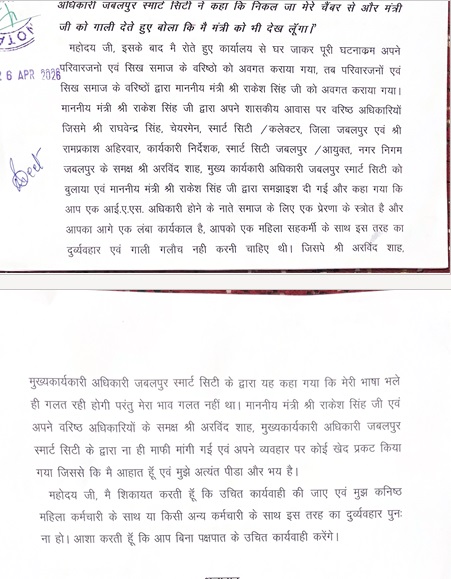 अधिकारी जबलपुर स्मार्ट सिटी ने कहा कि निकल जा मेरे चैंबर से और मंत्री
जी को गाली देते हुए बोला कि मै मंत्री को भी देख लूँगा।"
महोदय जी, इसके बाद मै रोते हुए कार्यालय से घर जाकर पूरी घटनाक्रम अपने
26 APR 2026
परिवारजनो एवं सिख समाज के वरिष्ठो को अवगत कराया गया, तब परिवारजनों एवं
सिख समाज के वरिष्ठों द्वारा माननीय मंत्री श्री राकेश सिंह जी को अवगत कराया गया।
माननीय मंत्री श्री राकेश सिंह जी द्वारा अपने शासकीय आवास पर वरिष्ठ अधिकारियों
जिसमे श्री राघवेन्द्र सिंह, चेयरमेन, स्मार्ट सिटी /कलेक्टर, जिला जबलपुर एवं श्री
रामप्रकाश अहिरवार, कार्यकारी निर्देशक, स्मार्ट सिटी जबलपुर /आयुक्त, नगर निगम
जबलपुर के समक्ष श्री अरविंद शाह, मुख्य कार्यकारी अधिकारी जबलपुर स्मार्ट सिटी को
बुलाया एवं माननीय मंत्री श्री राकेश सिंह जी द्वारा समझाइश दी गई और कहा गया कि
आप एक आई.ए.एस. अधिकारी होने के नाते समाज के लिए एक प्रेरणा के स्त्रोत है और
आपका आगे एक लंबा कार्यकाल है, आपको एक महिला सहकर्मी के साथ इस तरह का
दुर्व्यवहार एवं गाली गलौच नही करनी चाहिए थी। जिसपे श्री अरविंद शाह,
मुख्यकार्यकारी अधिकारी जबलपुर स्मार्ट सिटी के द्वारा यह कहा गया कि मेरी भाषा भले
ही गलत रही होगी परंतु मेरा भाव गलत नहीं था। माननीय मंत्री श्री राकेश सिंह जी एवं
अपने वरिष्ठ अधिकारियों के समक्ष श्री अरविंद शाह, मुख्यकार्यकारी अधिकारी जबलपुर
स्मार्ट सिटी के द्वारा ना ही माफी मांगी गई एवं अपने व्यवहार पर कोई खेद प्रकट किया
गया जिससे कि मै आहात हूँ एवं मुझे अत्यंत पीडा और भय है।
महोदय जी, मै शिकायत करती हूँ कि उचित कार्यवाही की जाए एवं मुझ कनिष्ठ
महिला कर्मचारी के साथ या किसी अन्य कर्मचारी के साथ इस तरह का दुर्व्यवहार पुनः
ना हो। आशा करती हूँ कि आप बिना पक्षपात के उचित कार्यवाही करेंगे।